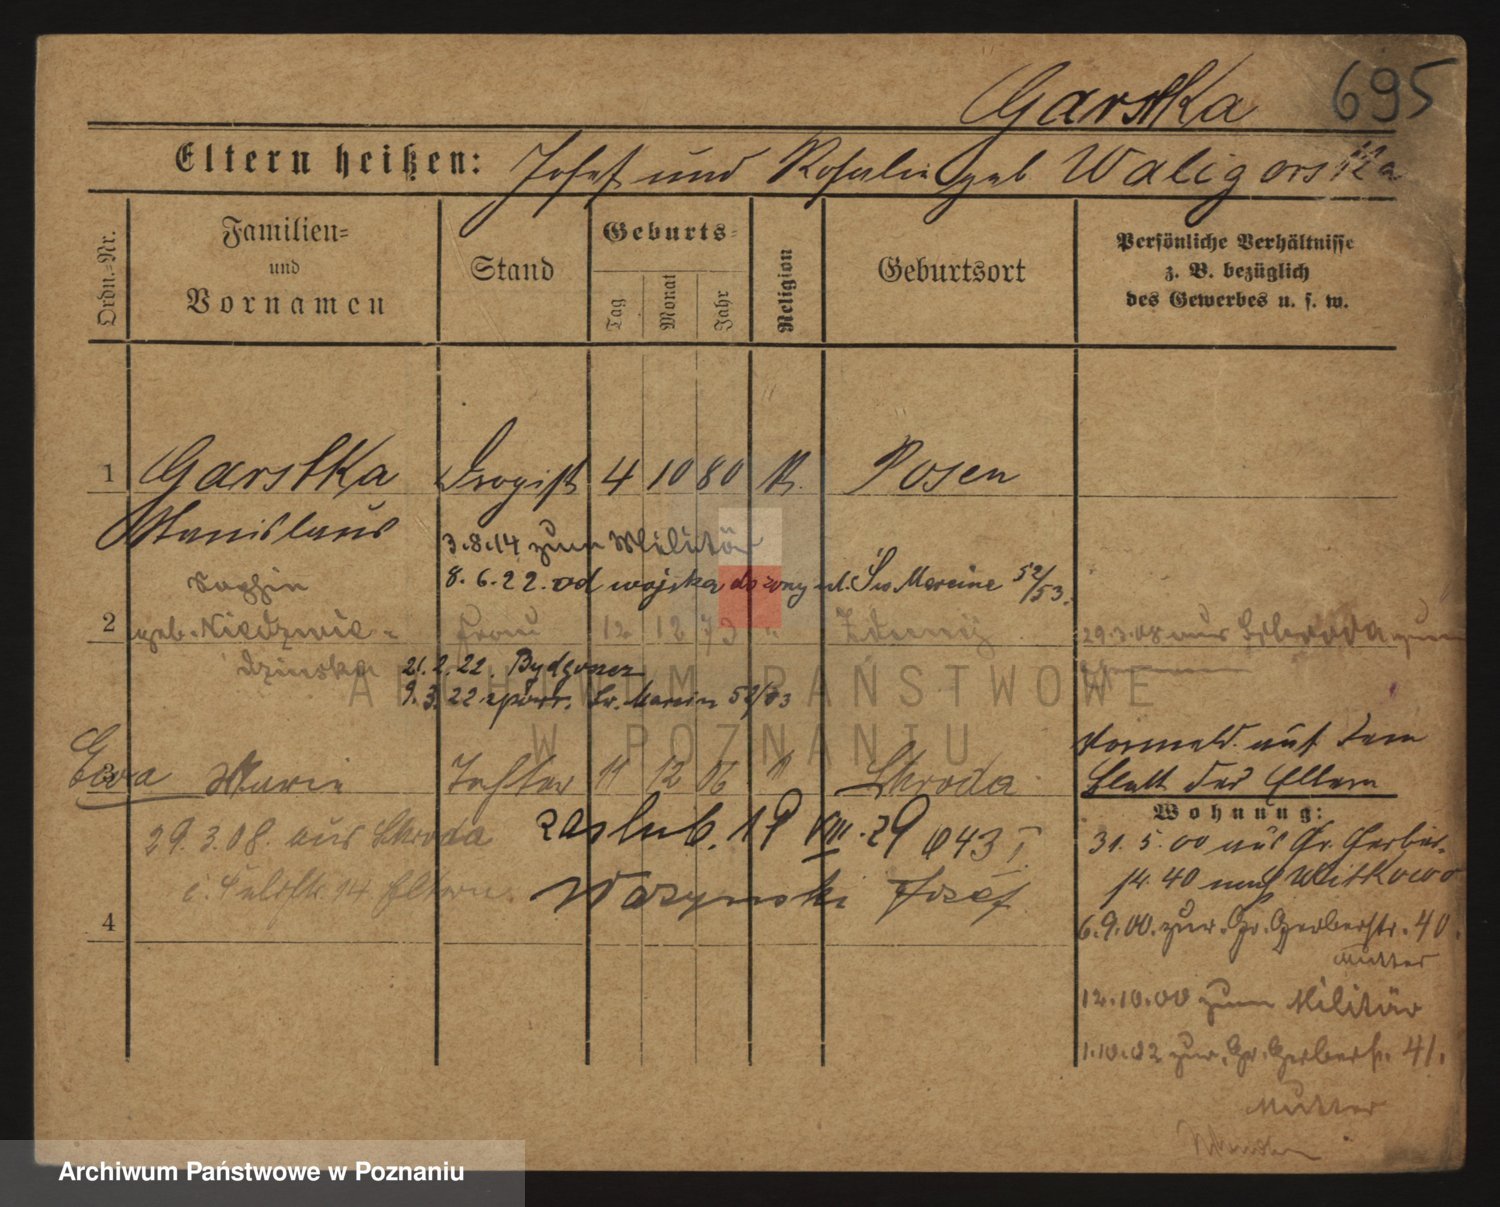 Garstka 695
Eltern heißen: Josef und Rosalie geb Waligorska
Ordn.-Nr.
Familien=
und
Vornamen
Stand
Geburts=
Tag
Monat
Jahr
Religion
Geburtsort
Persönliche Verhältnisse
z. B. bezüglich
des Gewerbes u. s. w.
1 Garstka Drogist 4 10 80 k. Posen
Stanislaus
3.8.14 zum Militär
8.6.22. od wojska do żony ul. Św Marcina 52/53.
Sophie
2 geb. Niedzwie- Frau 12 12 79 " 29.3.08 aus Schroda zum
dzinska 21.2.22. Bydgoszcz
9.3.22 Św. Marcin 52/53
ARCHIWUM PAŃSTWOWE
W POZNANIU
Vormeld. auf dem
3 Ewa Marie Tochter 11 12 06 " Schroda Blatt der Eltern
Wohnung:
29.3.08. aus Schroda zaślub. 19 VIII.29 943 I
31.5.00 aus Gr. Gerber-
14 Eltern Wazynski Józef
str. 40 nach Witkowo
4
6.9.00. zur. Gr. Gerberstr. 40.
Mutter
12.10.00 zum Militär
1.10.02 zur. Gr. Gerberstr. 41.
Mutter
Archiwum Państwowe w Poznaniu